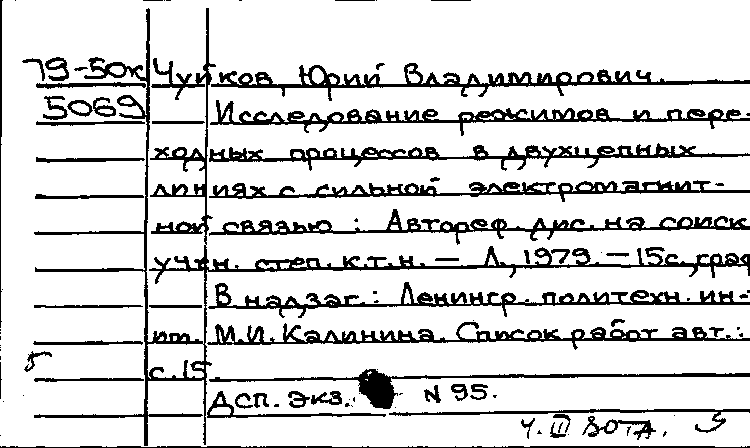 79-50к Чуйков, Юрий Владимирович.
5069 Исследование режимов и пере-
ходных процессов в двухцепных
линиях с сильной электромагнит-
ной связью : Автореф. дис. на соиск
учен. степ. к.т.н. — Л., 1979. — 15с., граф
В надзаг.: Ленингр. политехн. ин-т
им. М.И. Калинина. Список работ авт.:
с. 15.
ДСП. Экз. N 95.